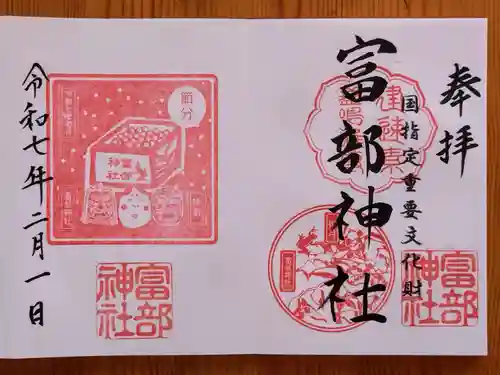 奉拝
国指定重要文化財
富部神社
富部
神社
節分
富部
神社
令和七年二月一日
富部
神社